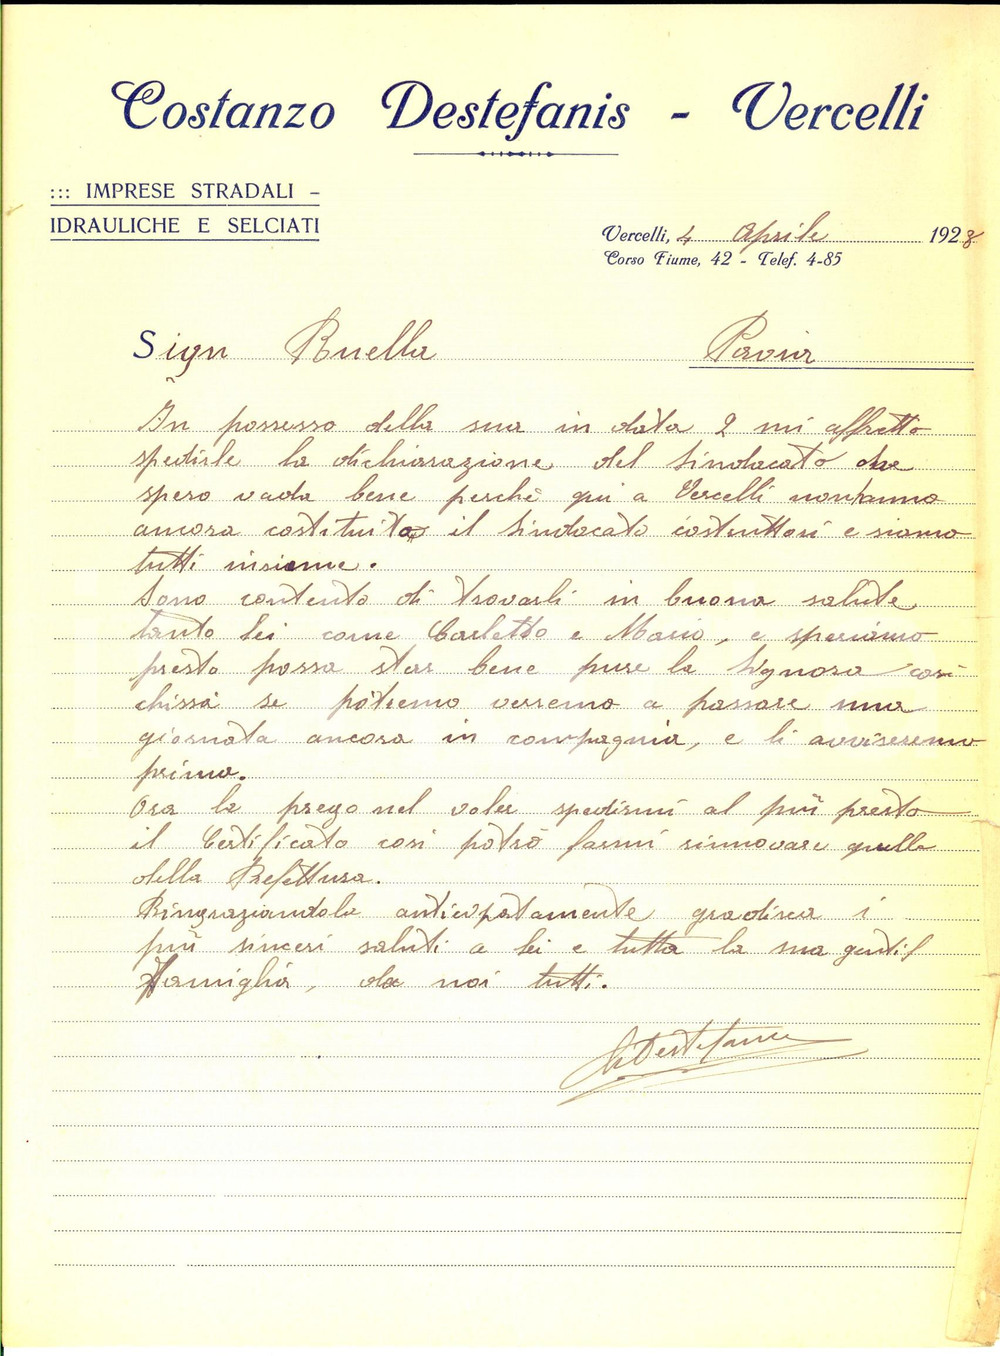 Costanzo Destefanis - Vercelli
::: IMPRESE STRADALI -
IDRAULICHE E SELCIATI
Vercelli, 4 Aprile 1928
Corso Fiume, 42 - Telef. 4-85
Sign Ruella Pavia
In possesso della sua in data 2 mi affretto
spedirle la dichiarazione del Sindacato che
spero vada bene perchè qui a Vercelli non hanno
ancora costituito il Sindacato costruttori e siamo
tutti insieme.
Sono contento di trovarli in buona salute
tanto lei come Carletto e Mario, e speriamo
presto possa star bene pure la Signora così
chissà se potremo verremo a passare una
giornata ancora in compagnia, e li avviseremo
prima.
Ora la prego nel voler spedirmi al più presto
il Certificato così potrò farmi rinnovare quello
della Prefettura.
Ringraziandola anticipatamente gradisca i
più sinceri saluti a lei e tutta la sua gentil
Famiglia, da noi tutti.
Destefanis